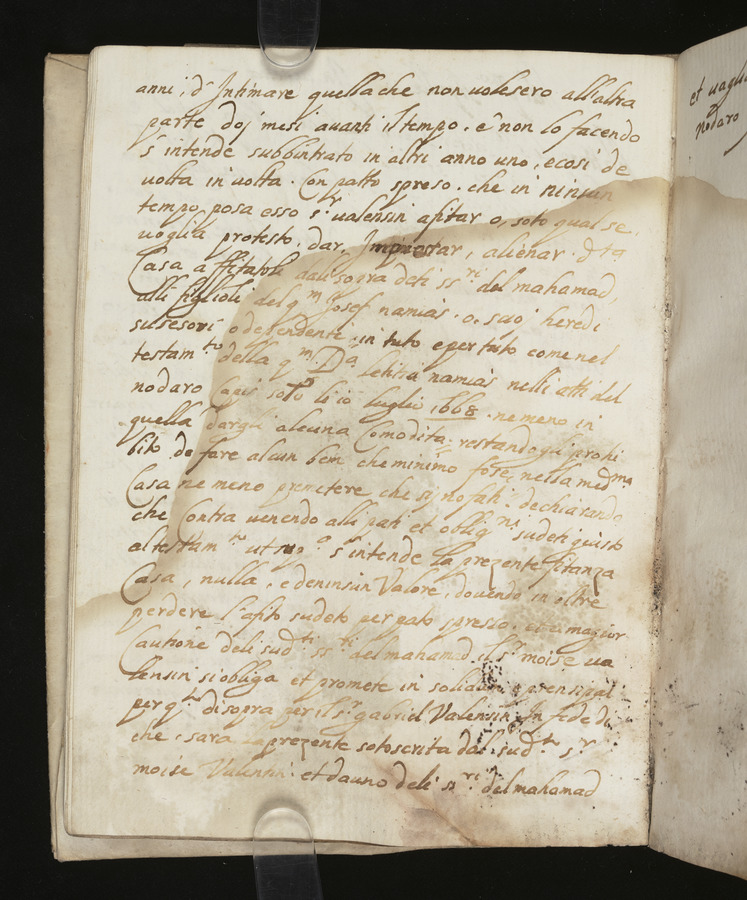 anni, d'Intimare quella che non uolesero all'altra
parte doj mesi auanti il tempo. e non lo facendo
s'intende subbintrato in altri anno uno, ecosi de
uolta in uolta. Con patto spreso. che in ninsun
tempo posa esso s.r ualensin afitar o, soto qual se
uoglia protesto. dar, Imprestar, alienar. d.ta
Casa affitatoli dali sopra deti ss.ri del mahamad,
alli figlioli del q.m Josef namias. o. suoj heredi
susesori o desendenti in tuto e per tuto come nel
testam.to della q.m D.a namias nelli atti del
nodaro soto li 10 luglio 1668. ne meno in
quella dargli alcuna Comodita restandogli prohi
bito de fare alcun ben che minimo nella med.ma
Casa ne meno premetere che si dechiarando
che Contra uenendo alli pati et oblig.ni sudeti giusto
al testam.to ut s'intende la prezente fitanza
Casa, nulla, e de ninsun Valore, douendo in oltre
perdere l'afito sudeto per pato spreso. magior
Cautione deli sud.ti ss.ri del mahamad il s.r moise ua
lensin si obliga et promete in solidum prensipal
per q.to di sopra per il s.r gabriel Valensin. In fede di
che, sara la prezente sotoscrita dal sud.to s.r
moise Valensin et da uno deli ss.ri del mahamad
et
nodaro